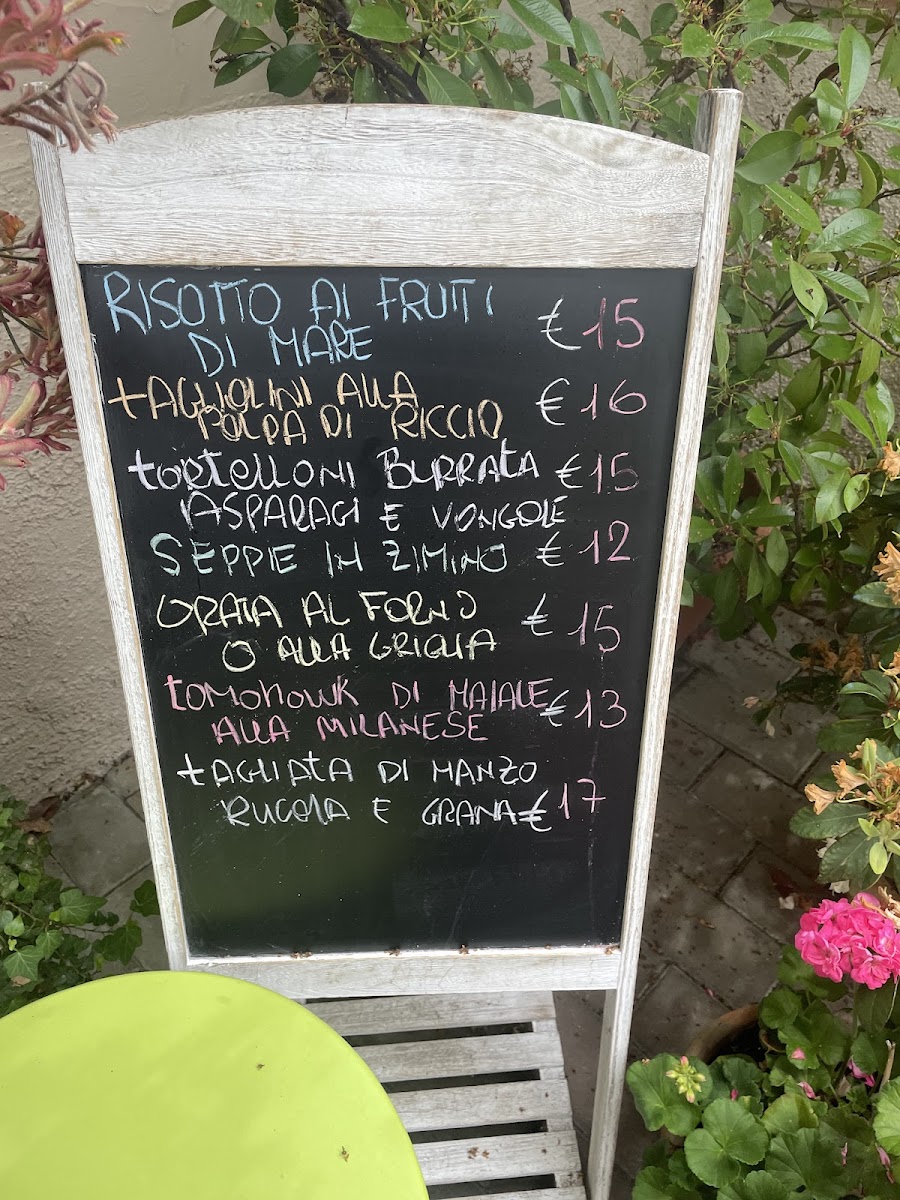 RISOTTO AI FRUTTI € 15
DI MARE
tAGLIOLINI ALLA € 16
POLPA DI RICCIO
tortelloni BURRATA € 15
ASPARAGI E VONGOLE
SEPPIE IN ZIMINO € 12
ORATA AL FORNO € 15
O ALLA GRIGLIA
tomohowk DI MAIALE € 13
ALLA MILANESE
tAGLIATA DI MANZO
RUCOLA E GRANA € 17